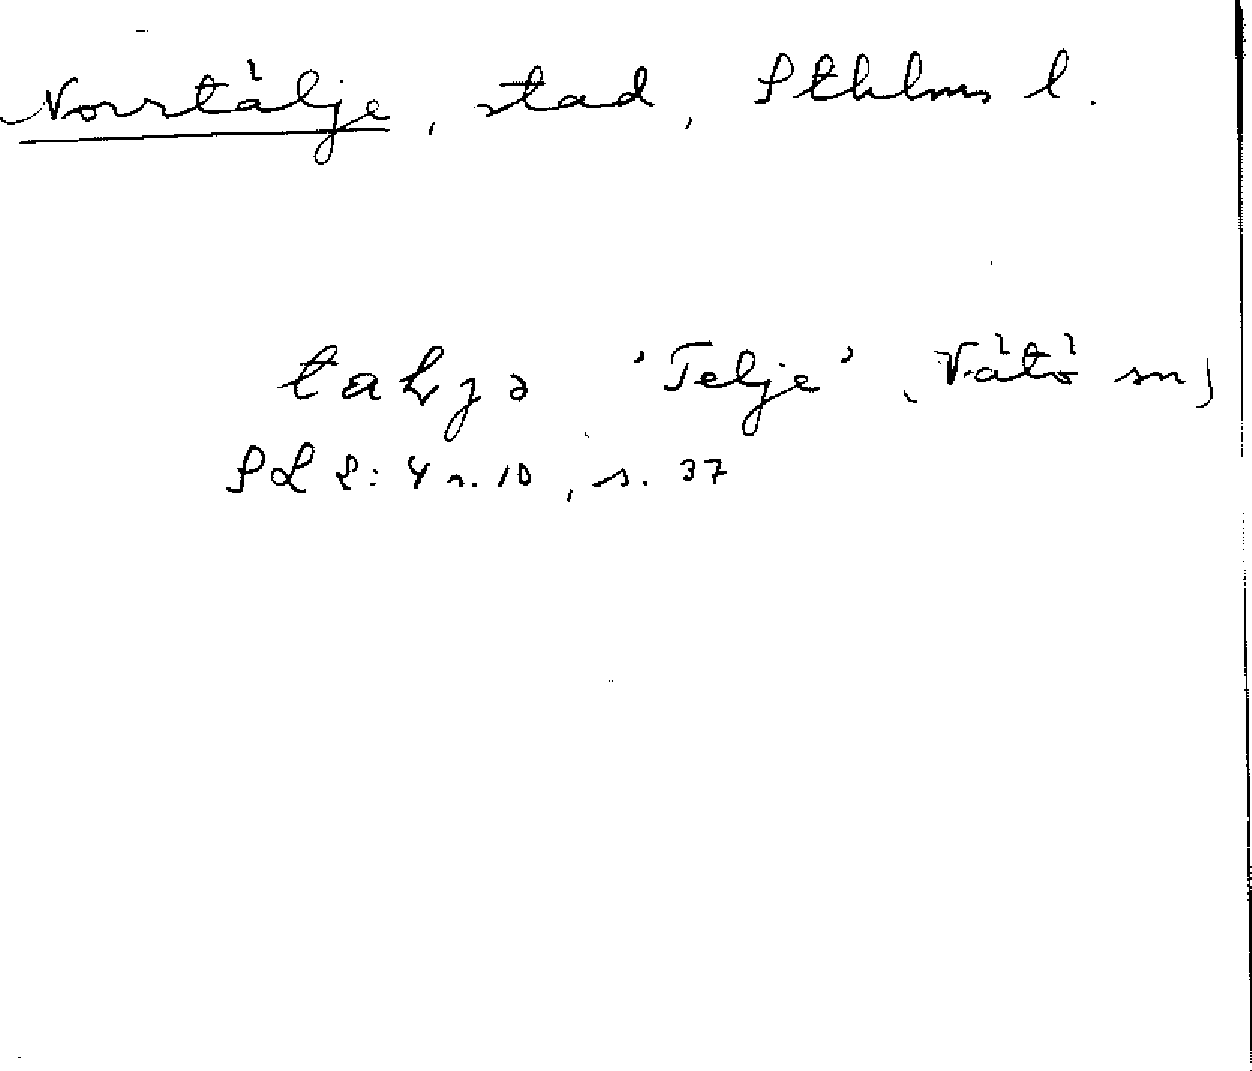 Norrtälje, stad, Sthlms l.
taḷjə 'Telje' (Vätö sn)
SL 2: 4 n. 10, s. 37